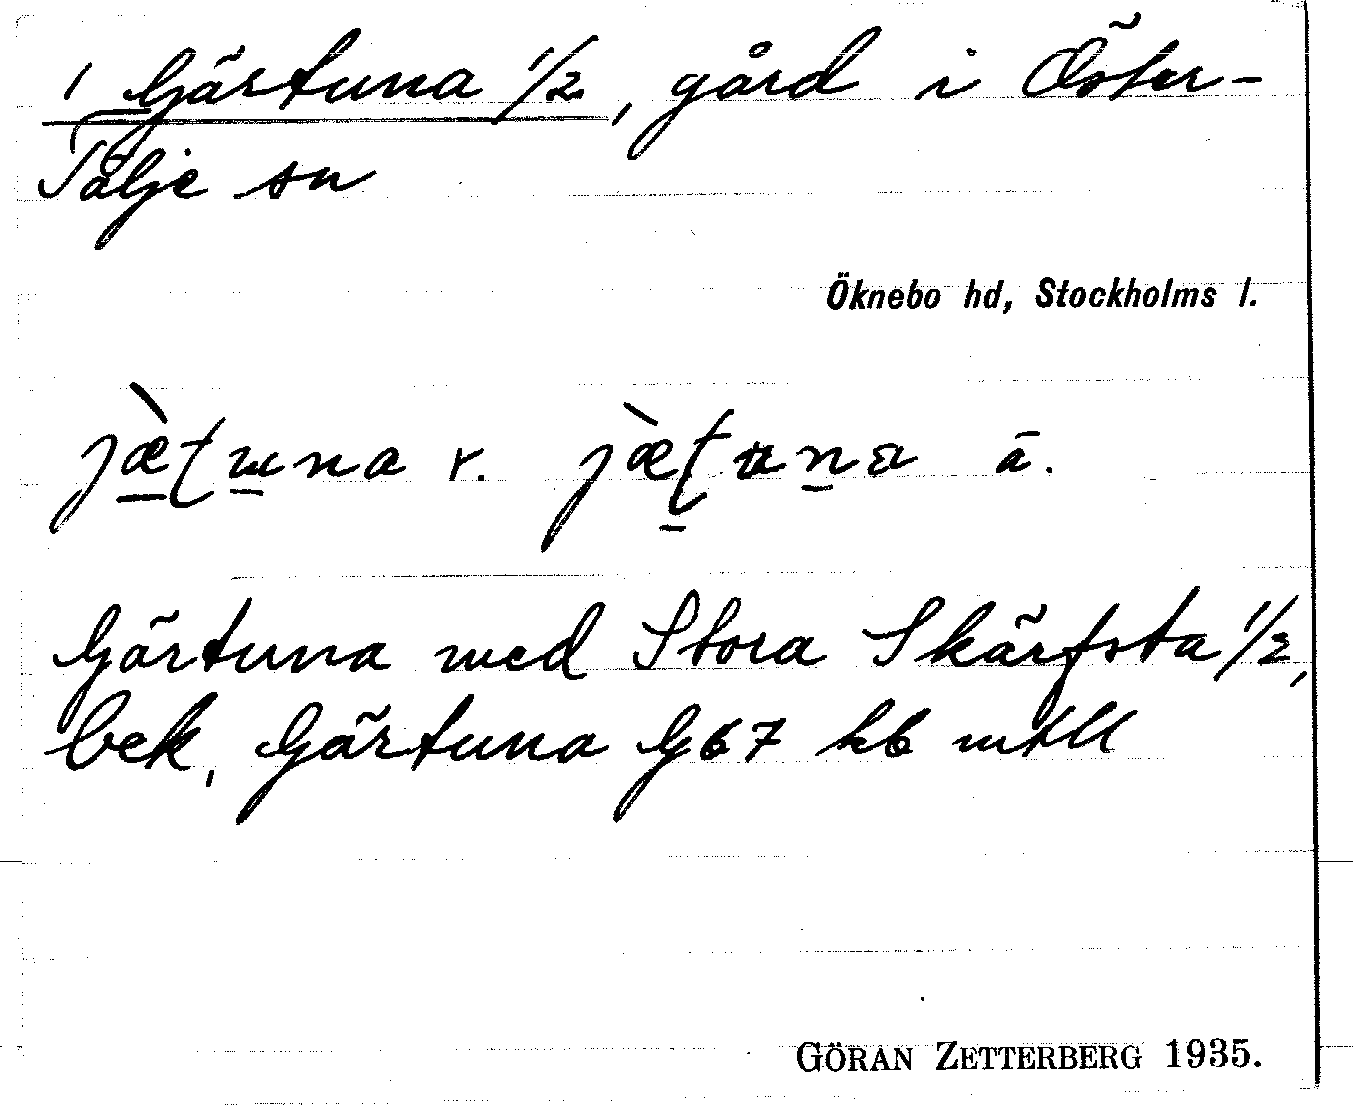 1 Gärtuna 1/2, gård i Öster-
Tälje sn
Öknebo hd, Stockholms l.
jæ̀ʈɯna r. jæ̀ʈʉna ā.
Gärtuna med Stora Skärfsta 1/2,
bek, Gärtuna G67 kb mtll
GÖRAN ZETTERBERG 1935.